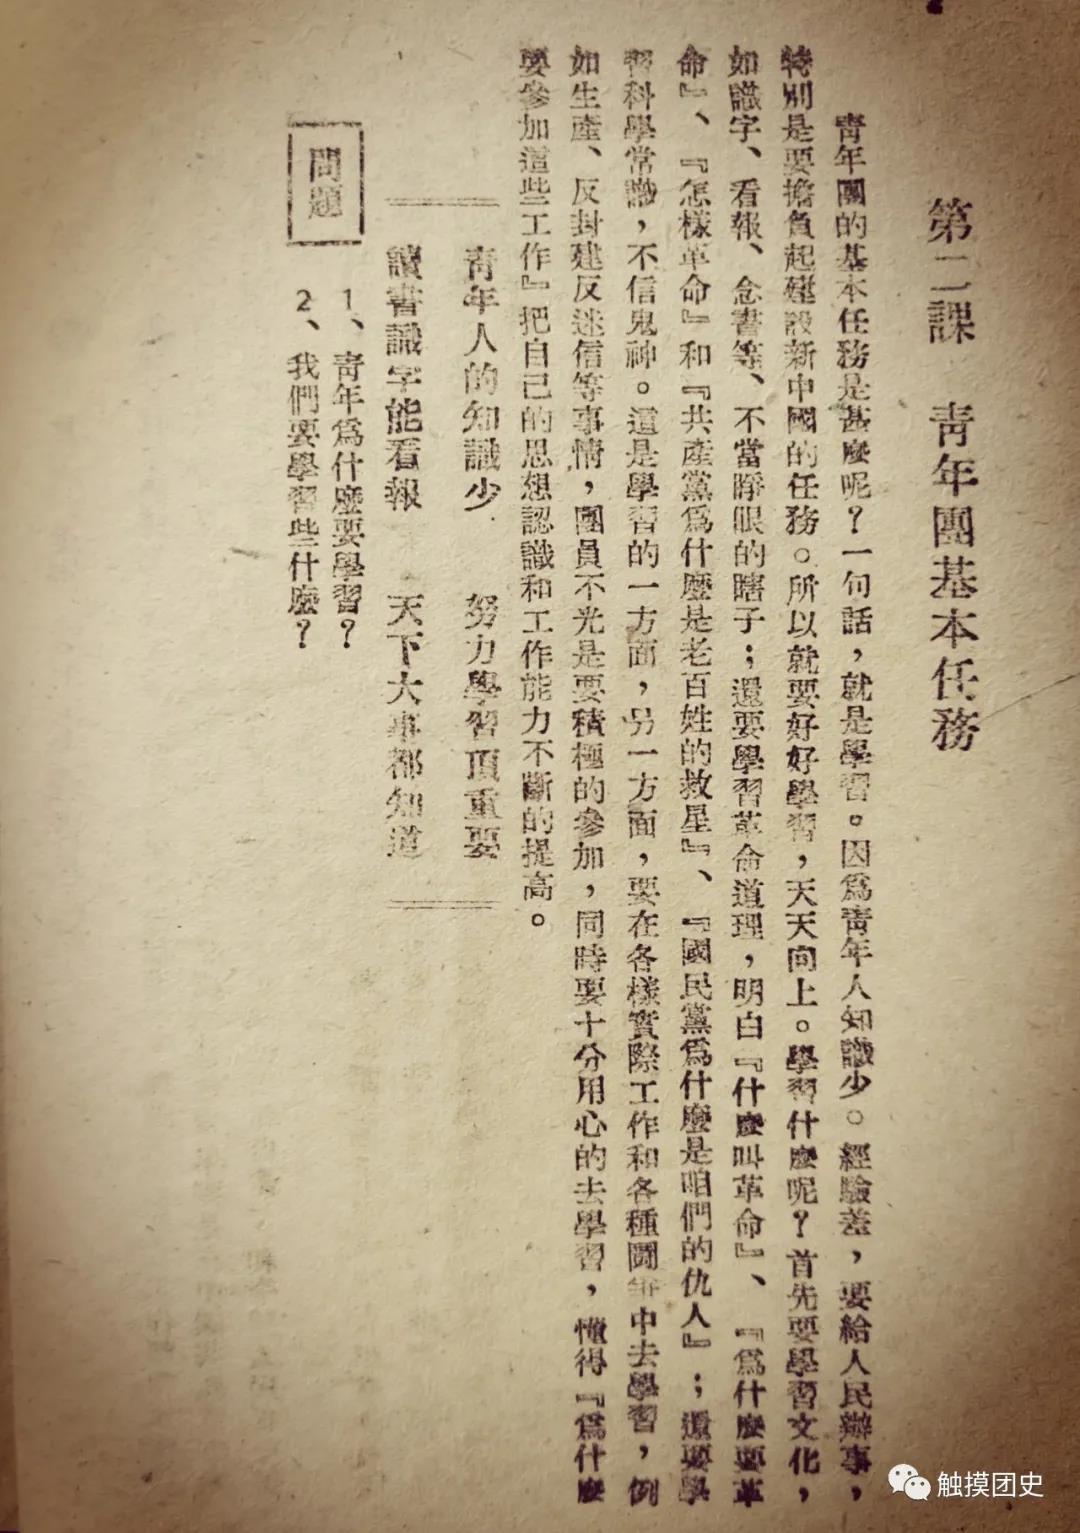 第二課　靑年團基本任務
靑年團的基本任務是甚麼呢？一句話，就是學習。因爲靑年人知識少。經驗差，要給人民辦事，
特別是要擔負起建設新中國的任務。所以就要好好學習，天天向上。學習什麼呢？首先要學習文化，
如識字、看報、念書等、不當睜眼的瞎子；還要學習革命道理，明白『什麼叫革命』、『爲什麼要革
命』、『怎樣革命』和『共產黨爲什麼是老百姓的救星』、『國民黨爲什麼是咱們的仇人』；還要學
習科學常識，不信鬼神。這是學習的一方面，另一方面，要在各樣實際工作和各種鬪爭中去學習，例
如生產、反封建反迷信等事情，團員不光是要積極的參加，同時要十分用心的去學習，懂得『爲什麼
要參加這些工作』把自己的思想認識和工作能力不斷的提高。
靑年人的知識少　努力學習頂重要
讀書識字能看報　天下大事都知道
問題
1、靑年爲什麼要學習？
2、我們要學習些什麼？
触摸团史